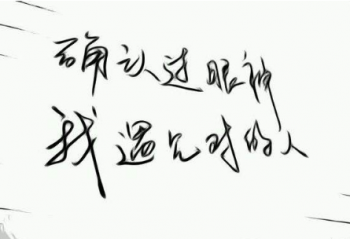 确认过眼神
我遇见对的人